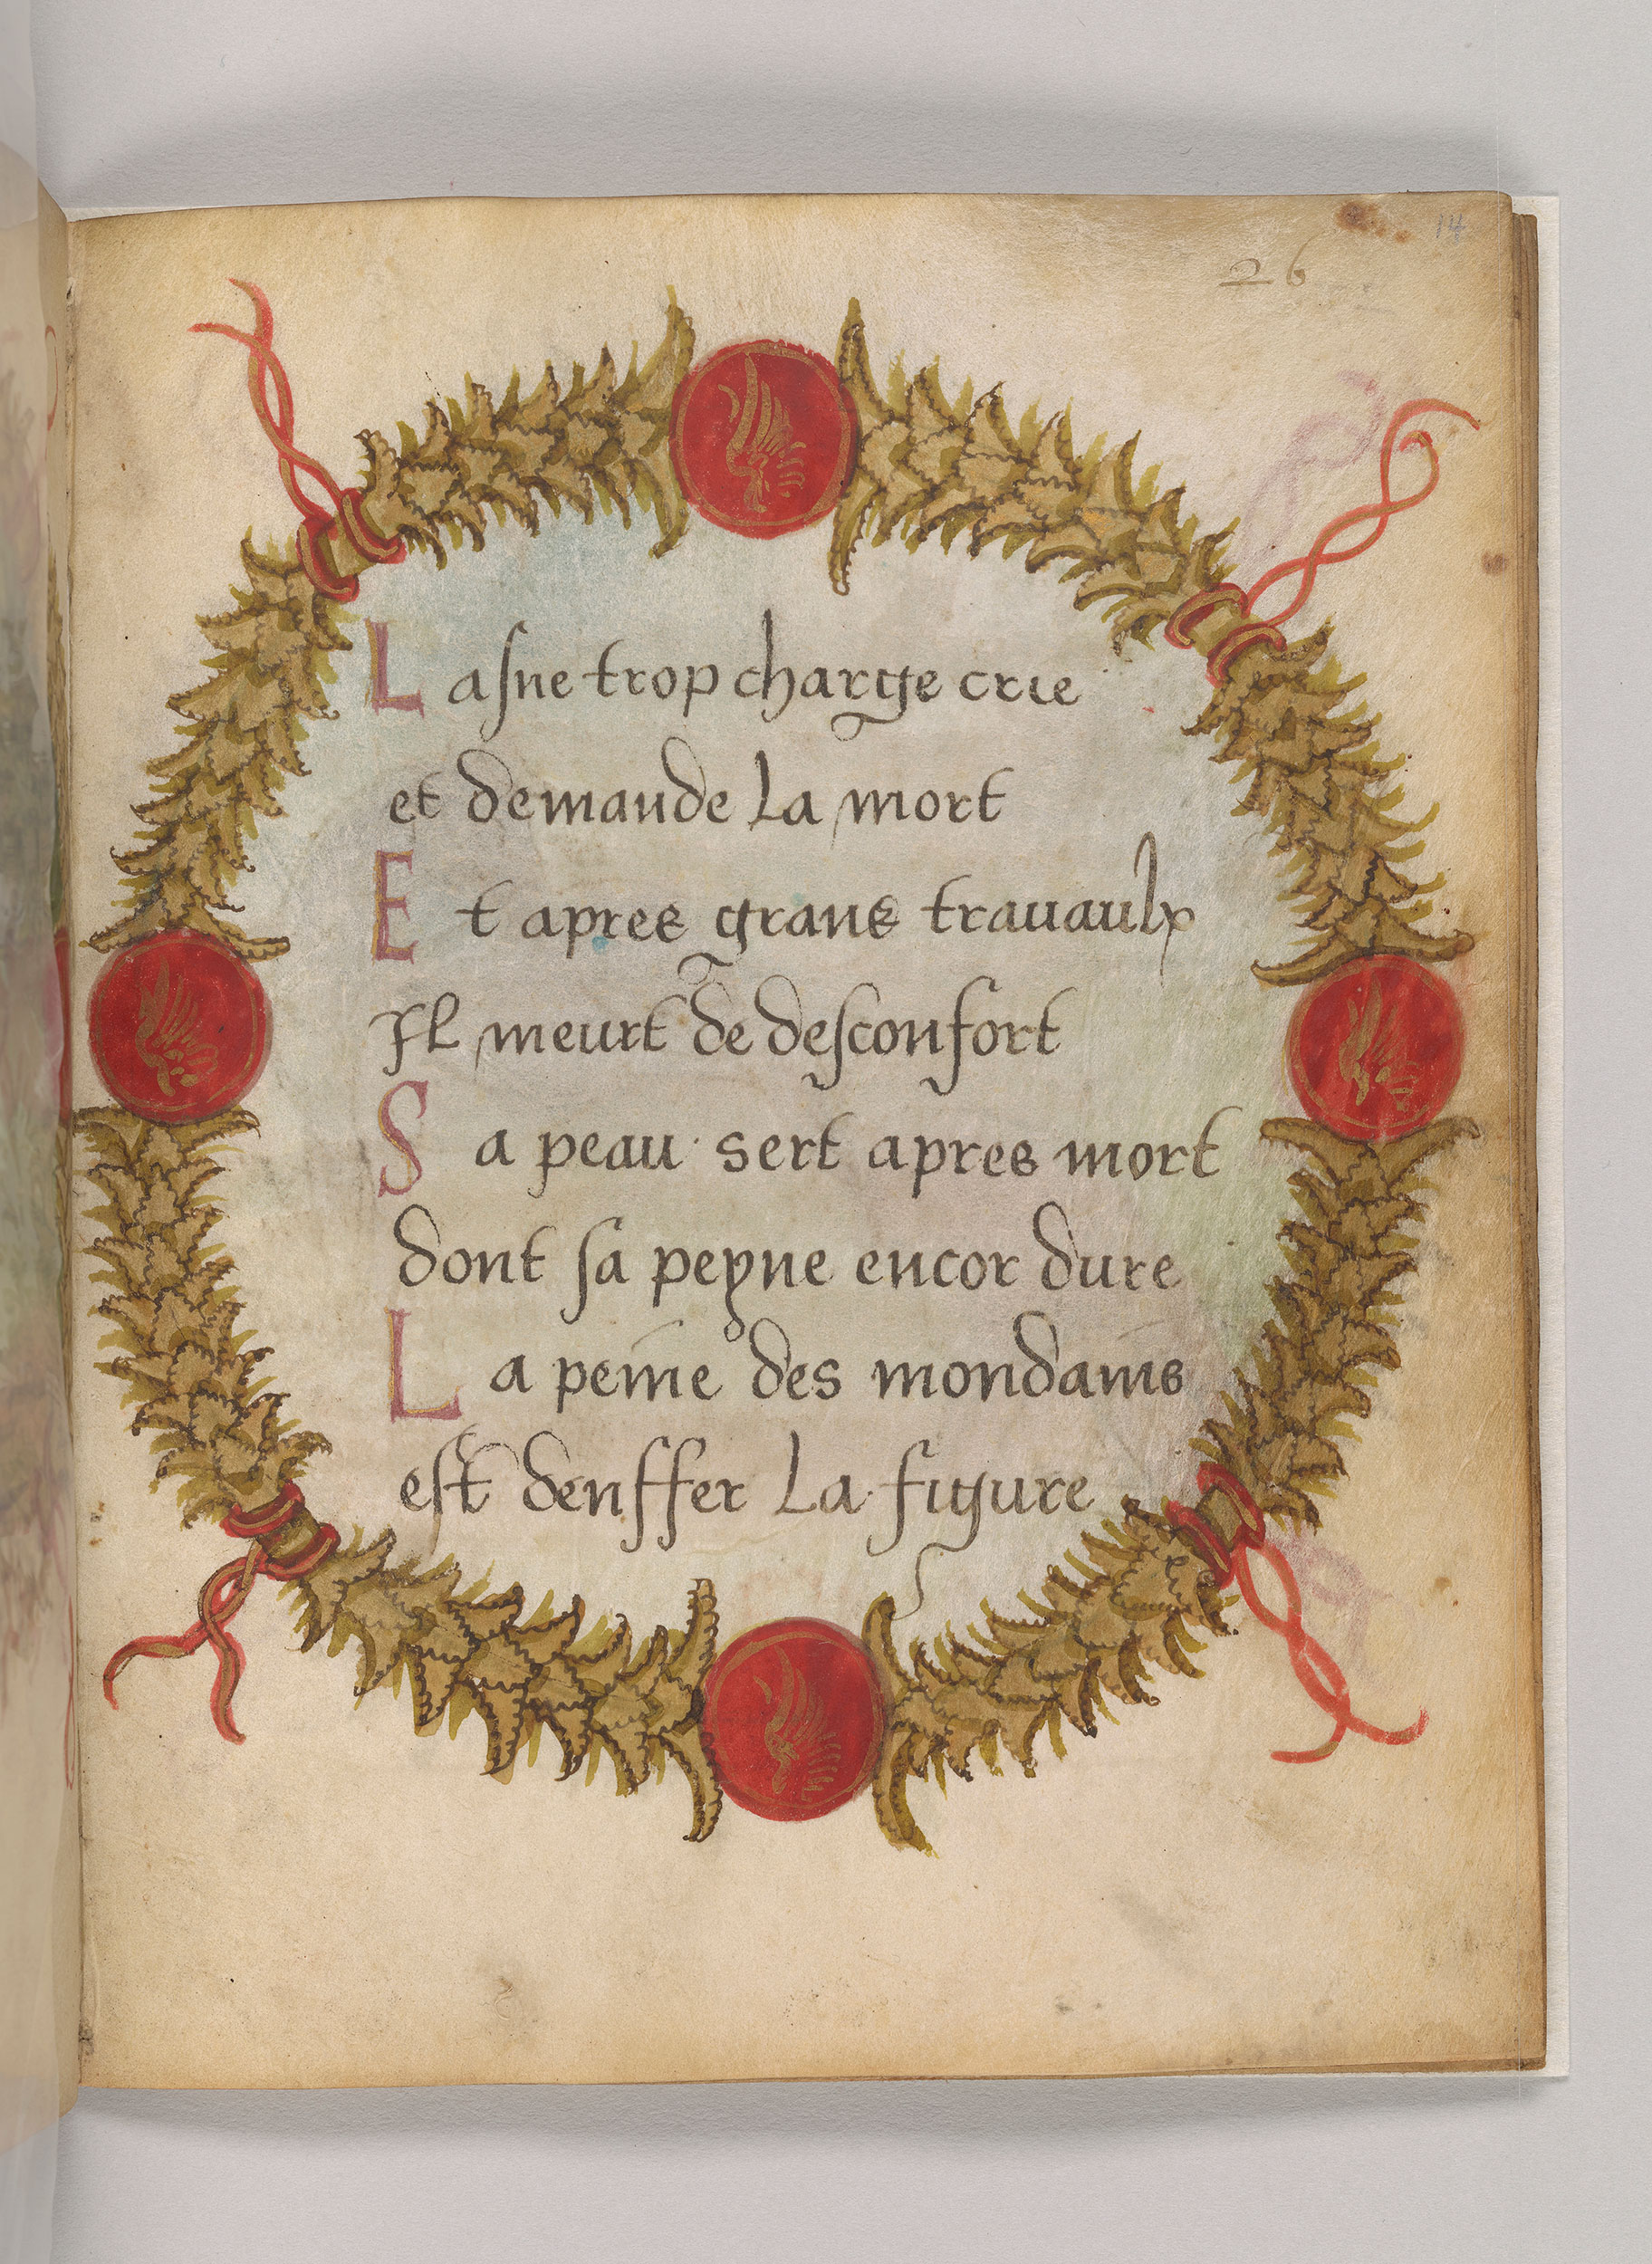 14
26
L asne trop charge crie
et demande La mort
E t apres grans travaulx
Il meurt de desconfort
S a peau sert apres mort
dont sa peyne encor dure
L a peine des mondains
est denffer La figure